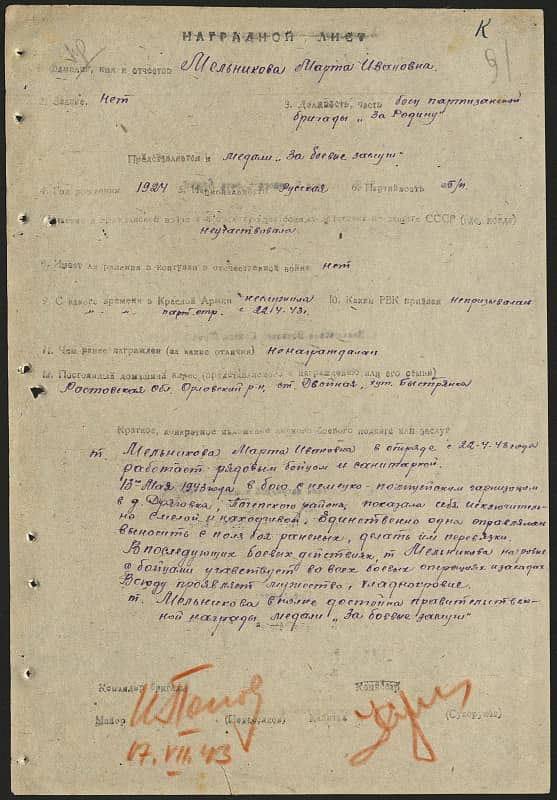 К
91
НАГРАДНОЙ ЛИСТ
1. Фамилия, имя и отчество Мельникова Марта Ивановна.
2. Звание. Нет
3. Должность, часть боец партизанской
бригады „За Родину"
Представляется к медали „За боевые заслуги"
4. Год рождения 1924 5. Национальность Русская 6. Партийность б/п
СССР (где, когда)
неучаствовала
8. Имеет ли ранения и контузии в отечественной войне нет
9. С какого времени в Красной Армии неслужила 10. Каким РВК призван непризывалась
„ „ „ парт.отр. с 22/4-43г.
11. Чем ранее награжден (за какие отличия) ненаграждалась
12. Постоянный домашний адрес (представляемого к награждению или его семьи)
Ростовская обл. Орловский р-н, ст. Двойная, хут. Быстрянка
Краткое, конкретное изложение личного боевого подвига или заслуг
т. Мельникова Марта Ивановна в отряде с 22-4-43 года
работает рядовым бойцом и санитаркой.
Мая 1943 года в бою с немецко-полицейским гарнизоном
в д. Почепского района, показала себя исключитель-
но смелой и находчивой. Единственно одна
выносить с поля боя раненых, делать им перевязки.
В последующих боевых действиях, т. Мельникова наравне
с бойцами учавствует во всех боевых операциях и засадах
Всюду проявляет мужество, хладнокровие.
т. Мельникова вполне достойна правительствен-
ной награды медали „За боевые заслуги"
Командир бригады
Комиссар
Майор
Капитан
17.VII.43